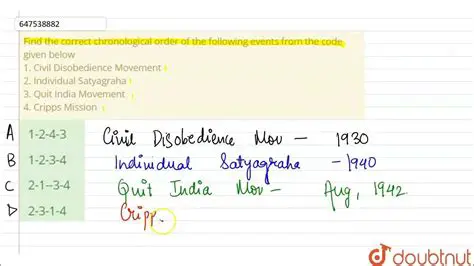 647538882
Find the correct chronological order of the following events from the code
given below
1. Civil Disobedience Movement
2. Individual Satyagraha
3. Quit India Movement
4. Cripps Mission
A 1-2-4-3 Civil Disobedience Mov — 1930
B 1-2-3-4 Individual Satyagraha - 1940
C 2-1--3-4 Quit India Mov - Aug, 1942.
D 2-3-1-4 Cripp
doubtnut